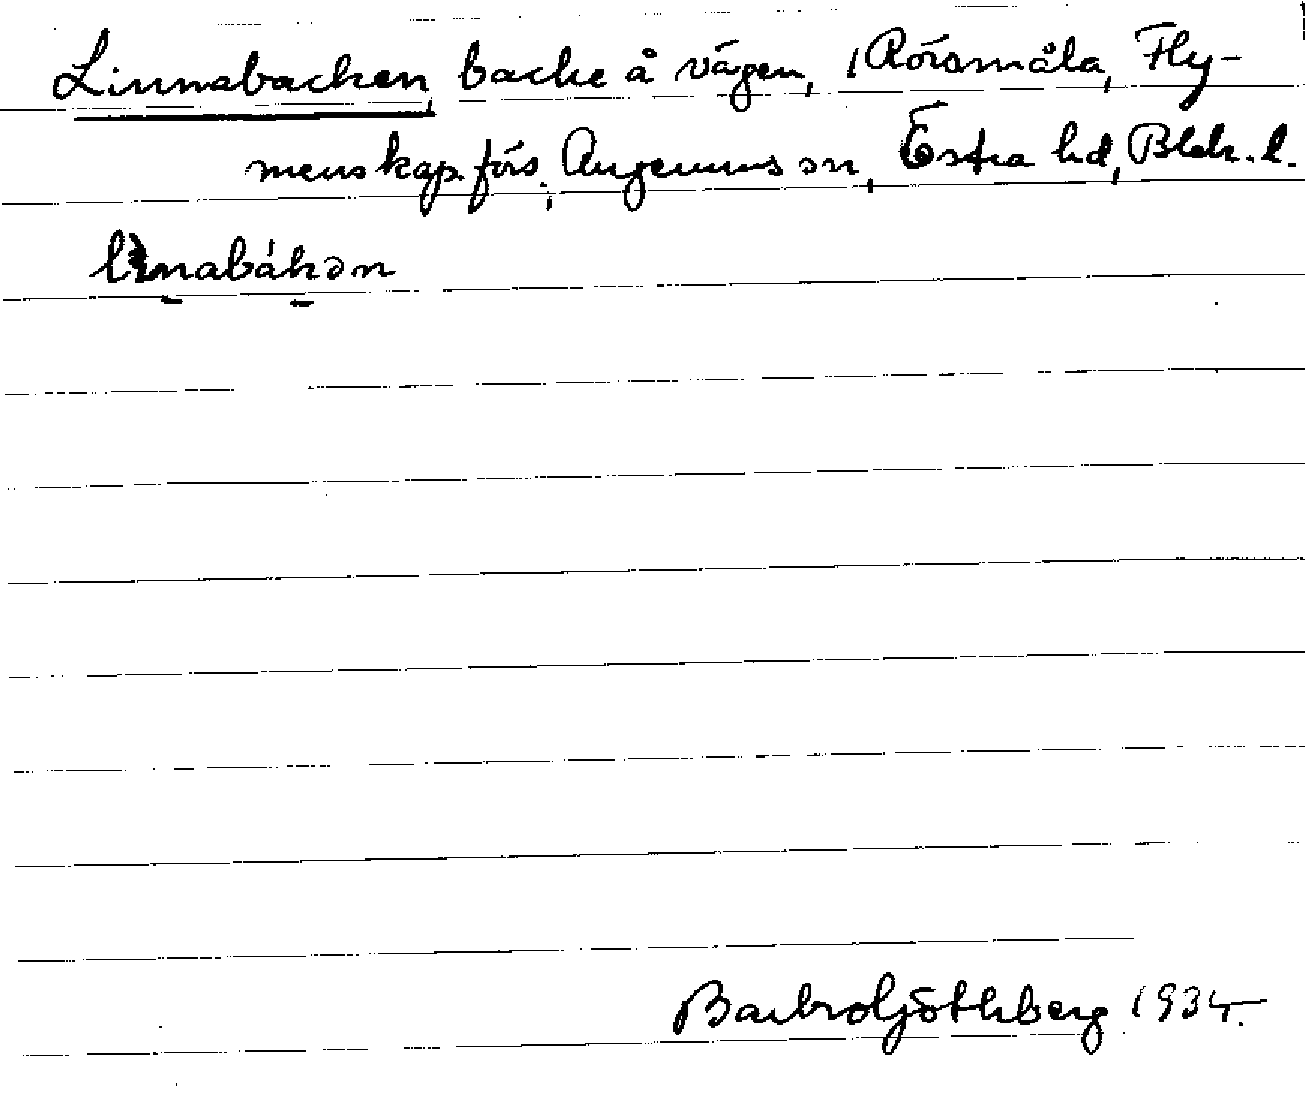 Linnabacken, backe å vägen, i Rörsmåla, Fly-
menskap.förs., Augerums sn, Östra hd, Blek. l.
linabákən
Barbro Göthberg 1934.